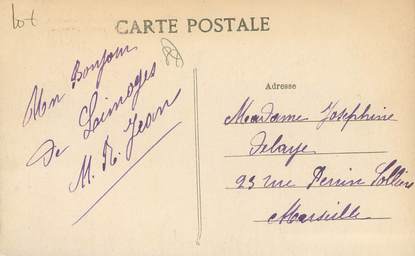 lot
CARTE POSTALE
Un Bonjour
de Limoges
M. R. Jean
Adresse
Madame Josephine
Delaye
23 rue Perrin Solliers
Marseille